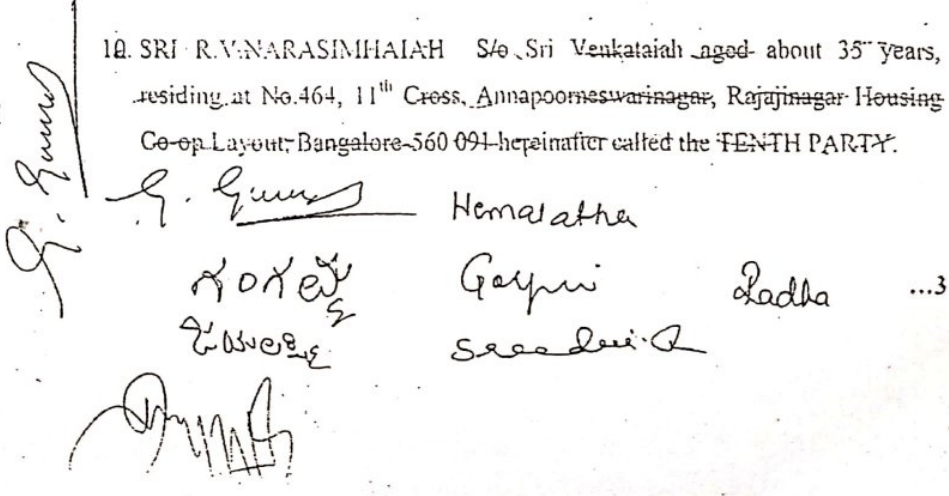 10. SRI R.V.NARASIMHAIAH S/o Sri Venkataiah aged about 35 years,
residing at No.464, 11th Cross, Annapoorneswarinagar, Rajajinagar Housing
Co-op Layout, Bangalore-560 091 hereinafter called the TENTH PARTY.
Hemalatha
ಗಂಗಮ್ಮ
Radha
...3
Sreedevi.R